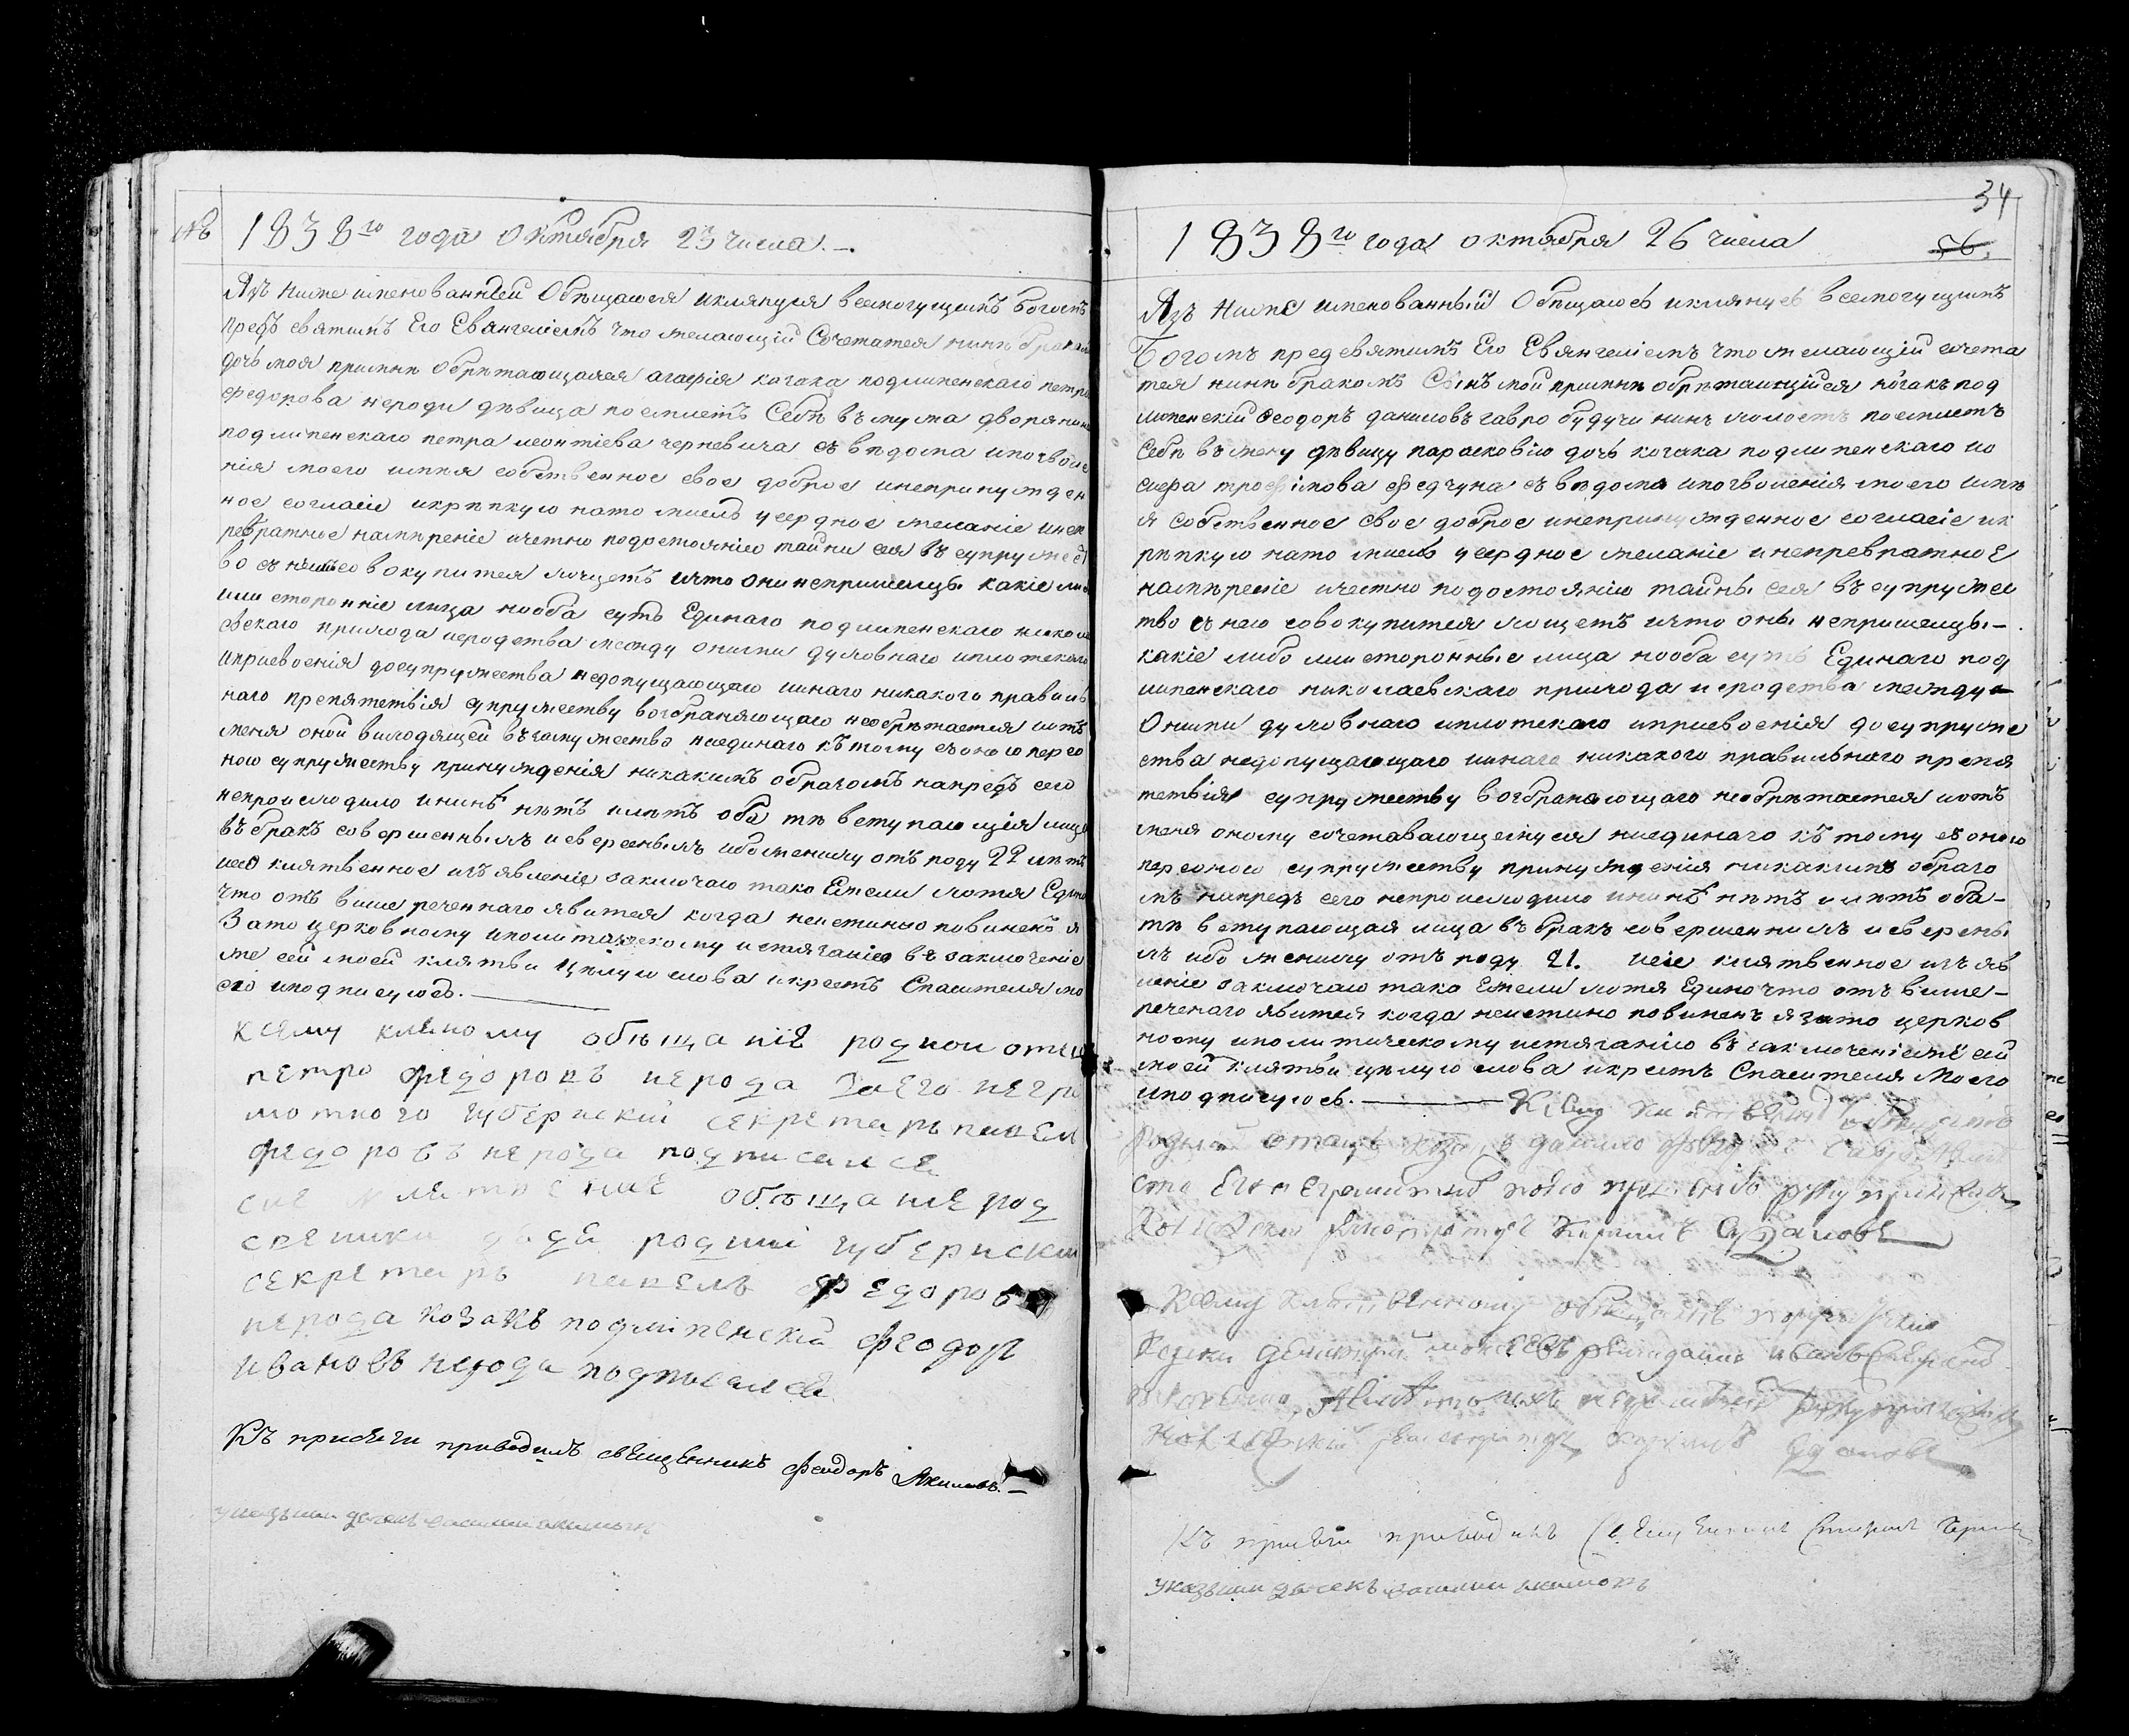 № 1838го года Октября 23 числа. —
Азъ ниже именованный Обѣщаюся иклянуся всемогущимъ богомъ
предъ святимъ Его Евангеліемъ что желающій Сочетатся нинѣ бракомъ
дочь моя приминѣ Обрѣтающаяся агафія козака подлипенскаго петра
федорова нероди дѣвица поемлетъ Себѣ въ мужа дворянина
подлипенскаго петра леонтіева черневича съ вѣдома ипозволе
нія моего имѣя собственное свое доброе инепринужден
ное согласіе икрѣпкую нато мисль усердное желаніе инеп
ревратное намѣреніе ичетно подостоянію тайни сея въ супружест
во съ нимъ совокупится хощетъ ичто они непришелцы какіе либ
или сторонніе лица нооба суть Единаго подлипенскаго никола
евскаго прихода исродства между оними духовнаго иплотскаго
иприсвоенія досупружества недопущающаго иинаго никакого правиль
наго препятствія супружеству возбраняющаго необрѣтается иотъ
меня оной виходящей въ замужество ниединаго къ тому съ оною персо
ною супружеству принужденія никакимъ образомъ напредъ сего
непроисходило ининѣ нѣтъ илѣтъ оба тѣ вступающія лица
въ бракъ совершеннымъ исверсенымъ ибо жениху отъ роду 22 лѣтъ
исео клятвенное изъявленіе заключаю тако Ежели хотя Едино
что отъ више реченнаго явится когда неистинно повиненъ я
Зато церковному иполитическому истязанію въ заключеніе
же сей моей клятви цѣлую слова икрестъ Спасителя мо
его иподписуюсь. —
ксему клѣному обѣщаніе родной отец
петро федоровъ нерода За его негра
мотного губернский секретарь павел
федоровъ нерода подписался
сие клятвение обѣщание род
свеники дядя родний губернский
секретарь павелъ федоровъ
нерода козакъ подлипенский феодор
ивановъ нерода подписался
Къ присяги приводилъ священникъ Феодоръ Якимовъ. —
указъний дячекъ василий якимовъ
34
1838го года октября 26 числа 56.
Азъ Ниже именованный Обѣщаюсь иклянусь всемогущимъ
Богомъ предсвятимъ Его Евангеліемъ что желающій сочета
тся нинѣ бракомъ Сынъ мой приминѣ обрѣтающійся козакъ под
липенскій Феодоръ даниловъ гавро будучи нинѣ холостъ поемлетъ
Себѣ въ жену дѣвицу парасковію дочь козака подлипенскаго ио
сифа трофимова федчуна съ вѣдома ипозволенія моего имѣ
я Собственное свое доброе инепринужденное согласіе ик
рѣпкую нато мисль усердное желаніе инепревратное
намѣреніе ичестно подостоянію тайны сея въ супружес
тво съ нею совокупится хощетъ ичто оны непришелцы —
какіе либо или сторонные лица нооба суть Единаго под
липенскаго николаевскаго прихода исродства между —
Оними духовнаго иплотскаго иприсвоенія досупруже
ства недопущающаго иинаго никакого правильнаго препя
тствія супружеству возбраняющаго необрѣтается иотъ
меня оному сочетавающемуся ниединаго къ тому съ оною
персоною супружеству принужденія никакимъ образо
мъ напредъ сего непроисходило ининѣ нѣтъ илѣтъ оба —
тѣ вступающая лица въ бракъ совершеннимъ исверсены
мъ ибо жениху отъ роду 21. исіе клятвенное изъяв
леніе заключаю тако Ежели хотя Едино что отъ више —
реченаго явится когда неистино повиненъ я зато церков
ному иполитическому истязанію въ заключеніе же сей
моей клятвы цѣлую слова икрестъ Спасителя Моего
иподписуюсь. — Ксему клятвенному обѣщанію
родный отецъ данило
его неграмотного руку приложилъ
регистраторъ
Ксему клятвенному обѣщанію
козаки димитрий
регистраторъ
Къ присяги приводилъ Священникъ
указъний дячекъ василии якимовъ